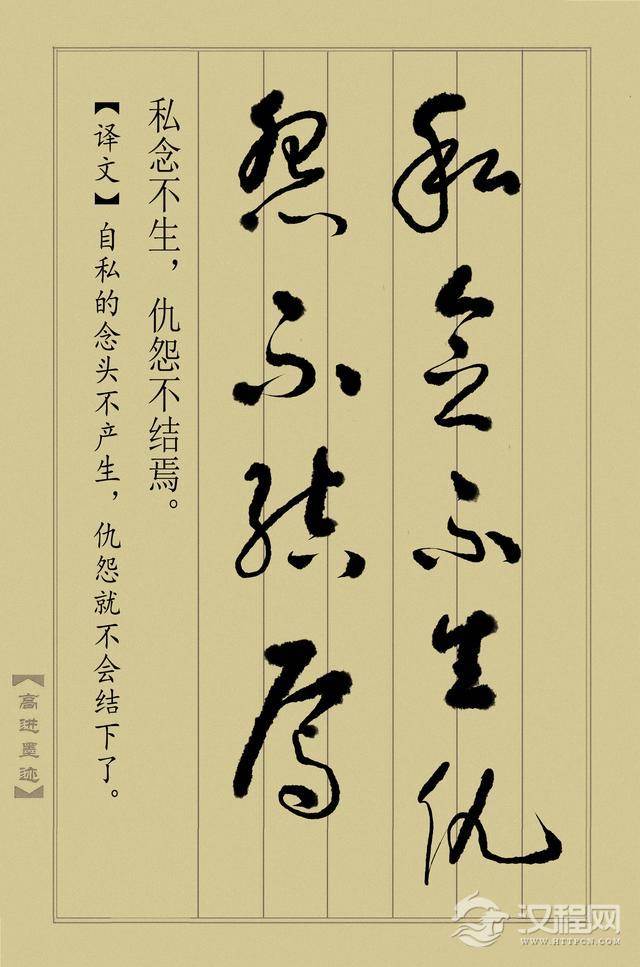 私念不生仇
怨不结焉
私念不生，仇怨不结焉。
【译文】自私的念头不产生，仇怨就不会结下了。
【高进墨迹】
汉程网
WWW.HTTPCN.COM